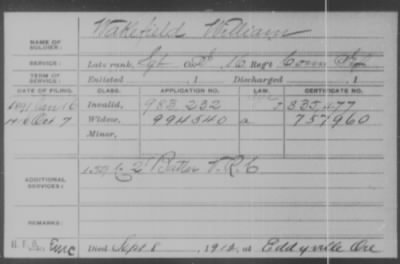 NAME OF SOLDIER: Wakefield William
SERVICE: Late rank, Sgt Co. D, 16 Regt Conn Inf
TERM OF SERVICE: Enlisted , 1 Discharged , 1
DATE OF FILING. CLASS. APPLICATION NO. LAW. CERTIFICATE NO.
1891 Jan 16 Invalid, 983.232 335.477
Oct 7 Widow, 994.540 a 757.960
Minor,
ADDITIONAL SERVICES: 159 Co 2" Batt'n V.R.C
REMARKS:
Died Sept. 8, 1912, at Eddyville Ore